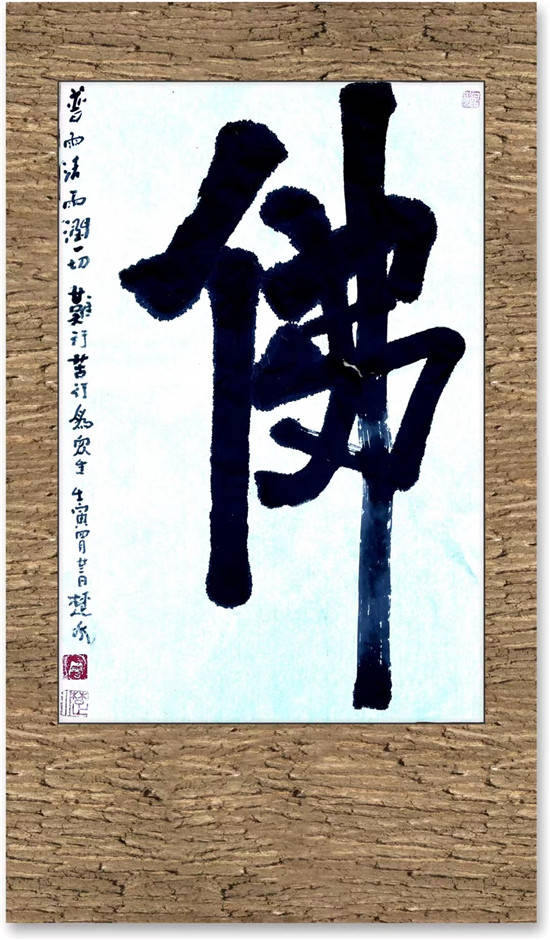 佛
普雨法雨潤一切 難行苦行為眾生 壬寅四月廿二日 楚